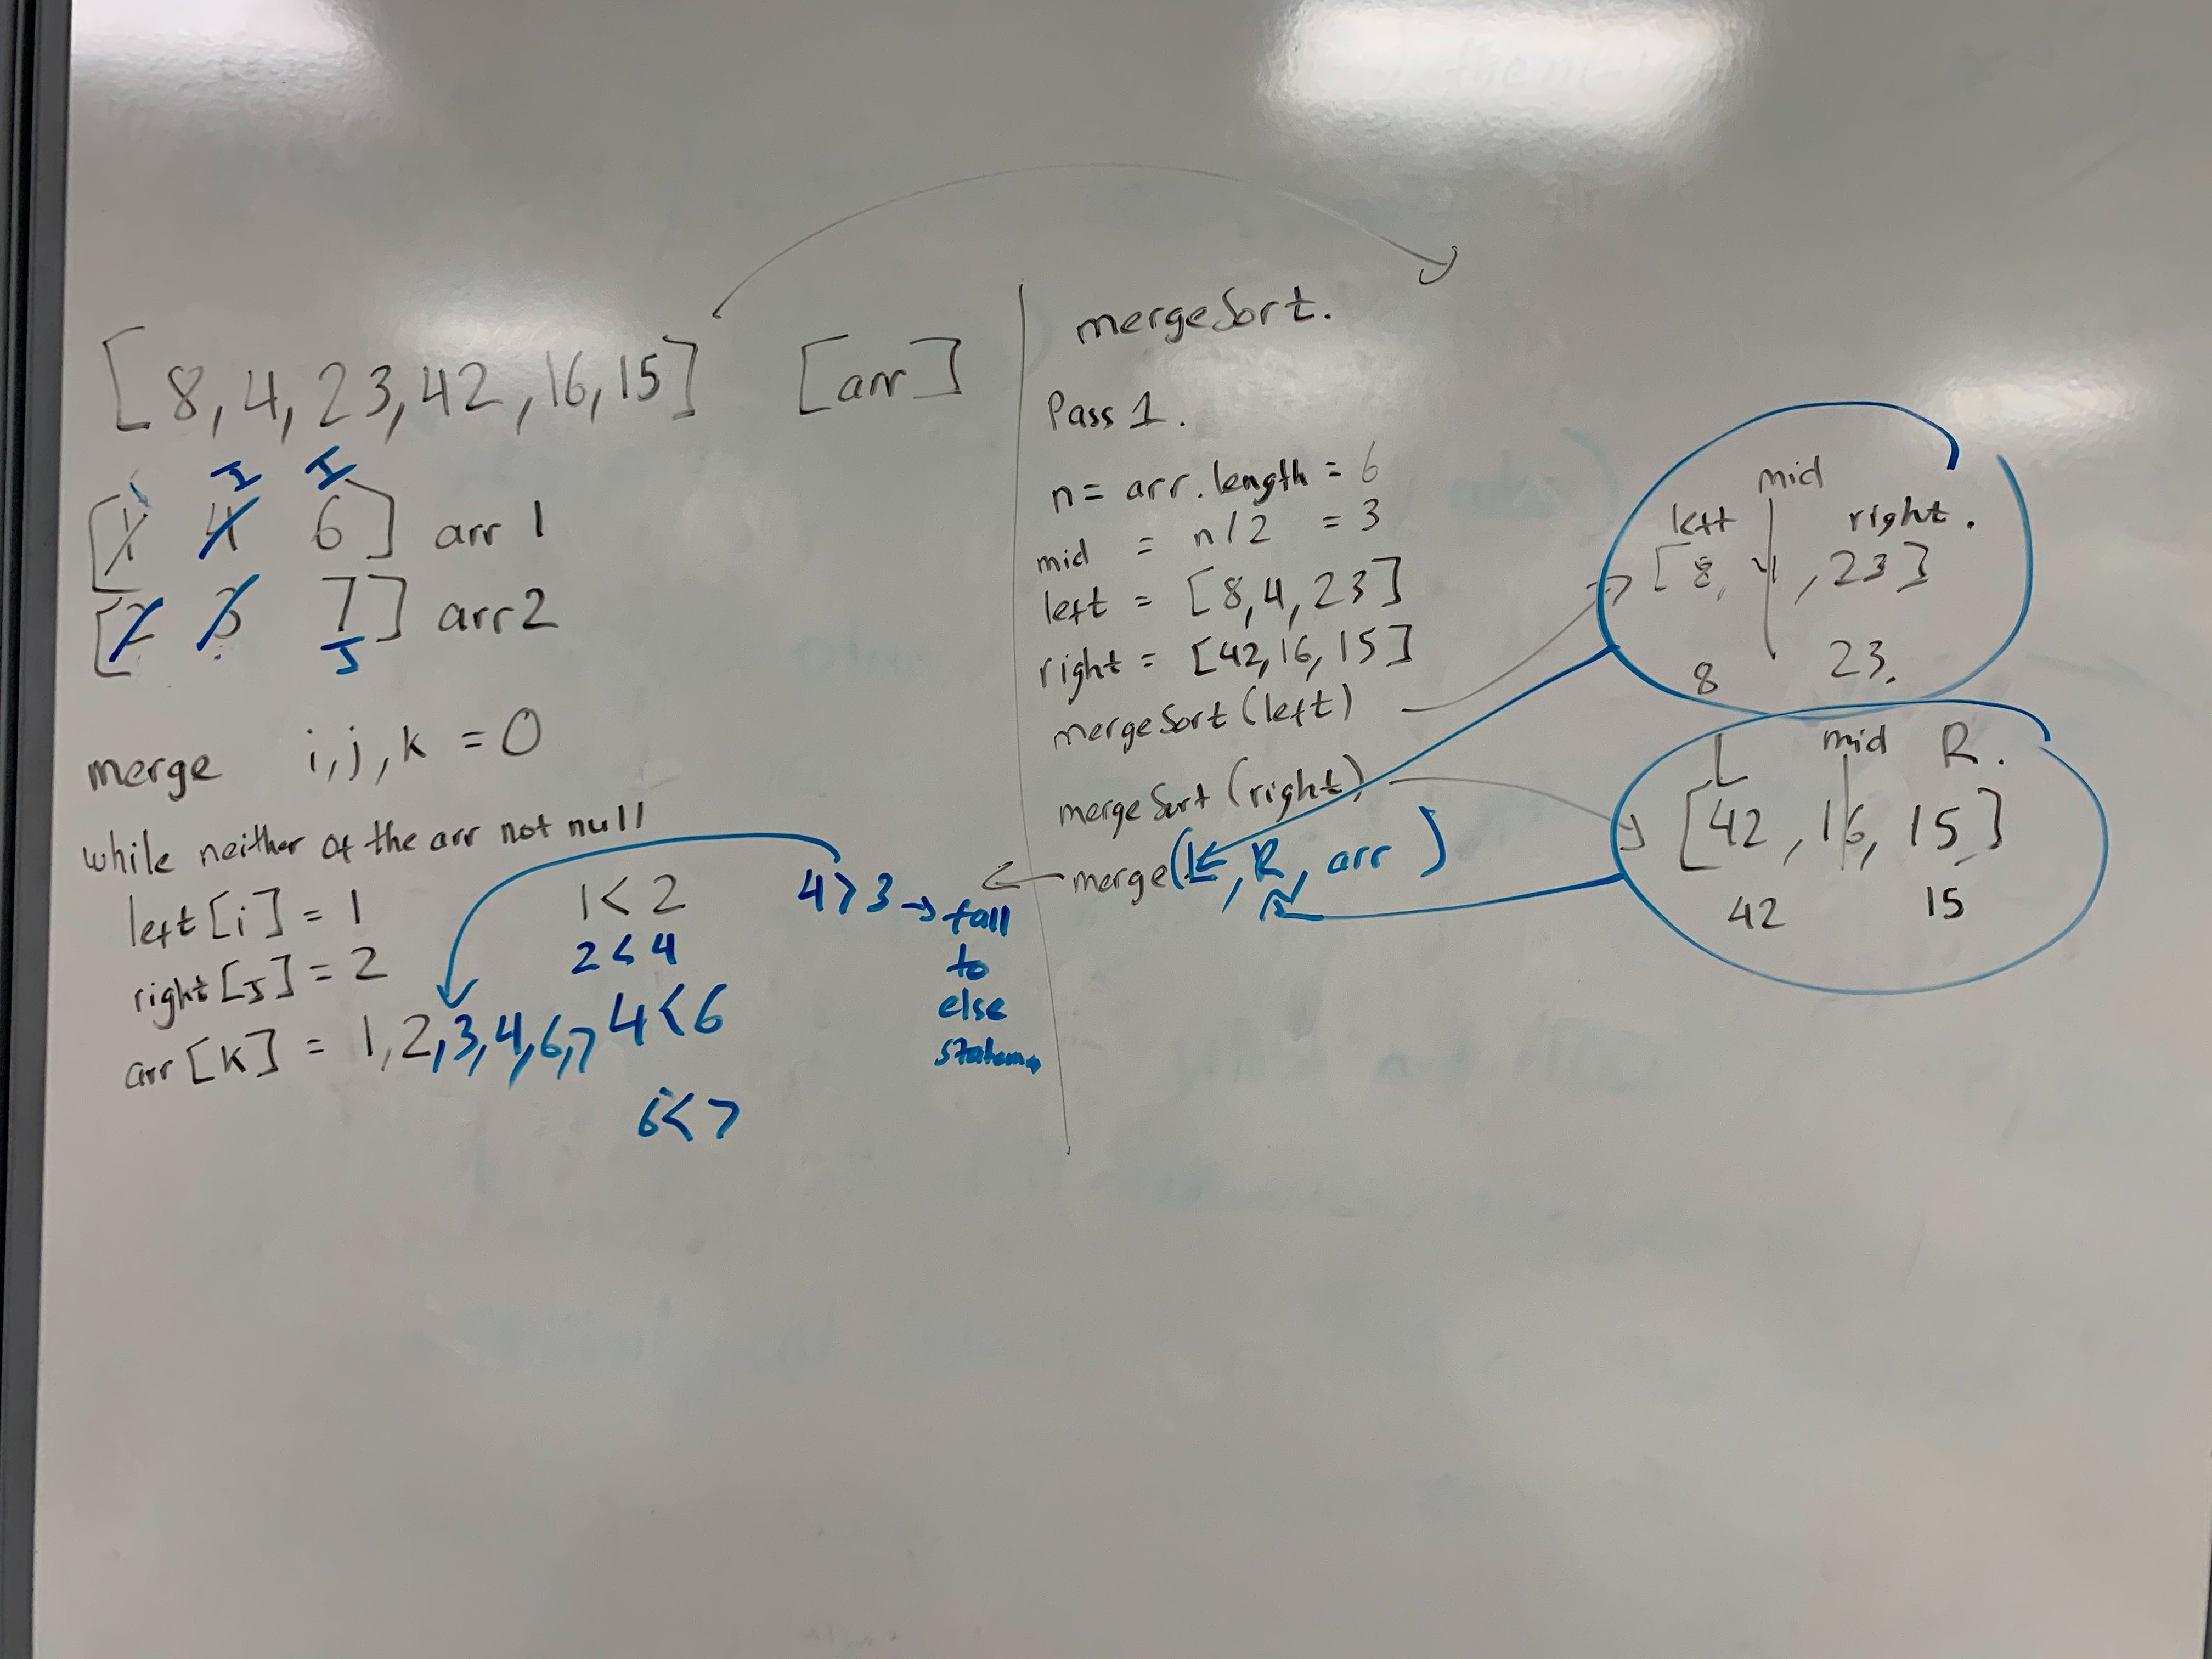 [8, 4, 23, 42, 16, 15] [arr]
I I
[1 4 6] arr 1
[2 3 7] arr 2
J
merge i, j, k = 0
while neither of the arr not null
left [i] = 1
right [J] = 2
arr [k] = 1, 2, 3, 4, 6, 7
1 < 2
2 < 4
4 < 6
6 < 7
4 > 3 → fall
to
else
mergeSort.
Pass 1.
n = arr.length = 6
mid = n/2 = 3
left = [8, 4, 23]
right = [42, 16, 15]
mergeSort (left)
mergeSort (right)
merge (L, R, arr)
mid
left right.
[8, 4, 23]
8 23.
L mid R.
[42, 16, 15]
42 15